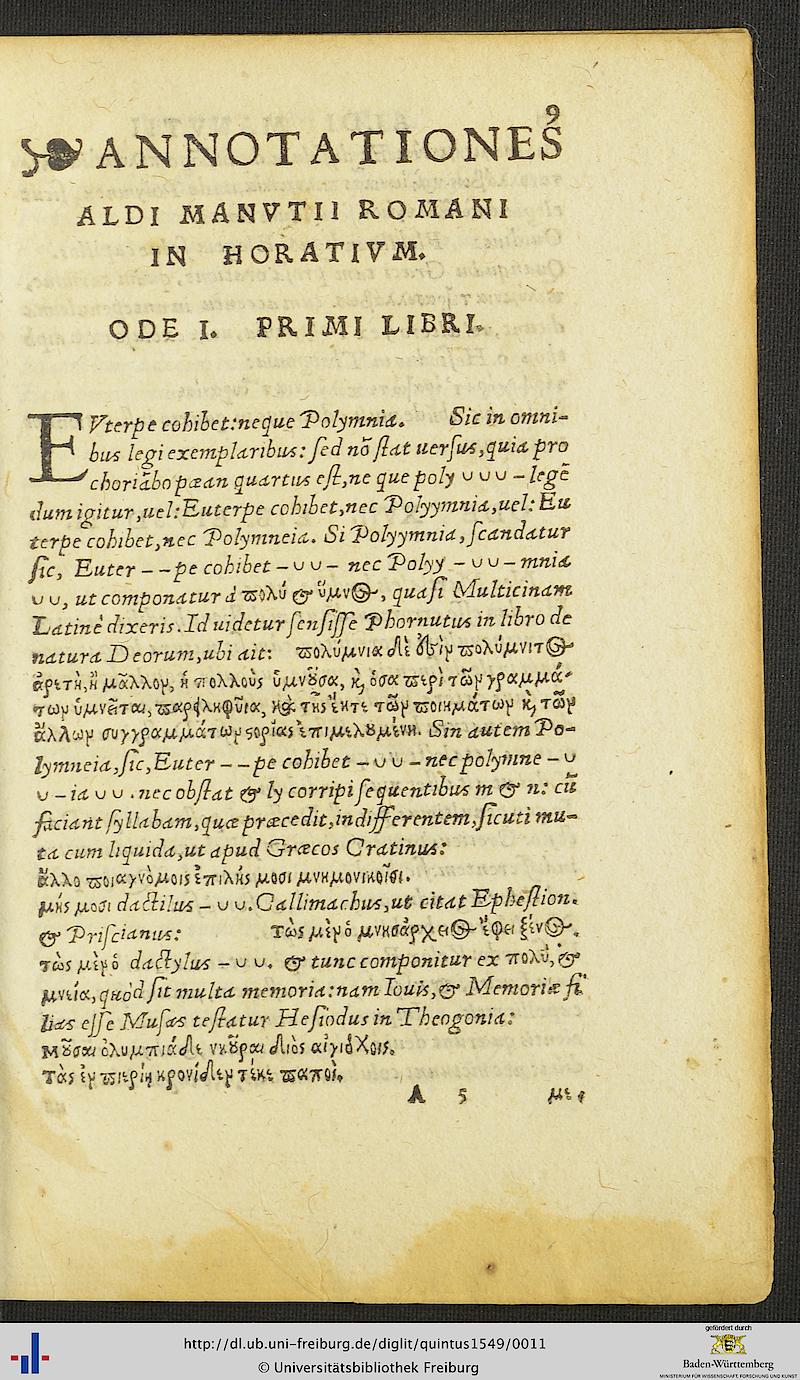 9
ANNOTATIONES
ALDI MANVTII ROMANI
IN HORATIVM.
ODE I. PRIMI LIBRI.
EVterpe cohibet: neque Polymnia. Sic in omni-
bus legi exemplaribus: sed nō stat uersus, quia pro
choriābo pæan quartus est, ne que poly ∪ ∪ ∪ – legē
dum igitur, uel: Euterpe cohibet, nec Polyymnia, uel: Eu
terpe cohibet, nec Polymneia. Si Polyymnia, scandatur
sic, Euter – – pe cohibet – ∪ ∪ – nec Polyy – ∪ ∪ – mnia
∪ ∪, ut componatur à πολύ & ὕμνος, quasi Multicinam
Latinè dixeris. Id uidetur sensisse Phornutus in libro de
natura Deorum, ubi ait: πολύμνια δὲ ἐστὶν πολύμνιτος
ἀρετὴ, ἢ μᾶλλον, ἡ πολλοὺς ὑμνοῦσα, κὶ ὅσα περὶ τῶν γραμμά-
των ὑμνεῖται, παρειληφυῖα, καὶ τῆς ἔκτε τῶν ποιημάτων κὶ τῶν
ἄλλων συγγραμμάτων ἱστορίας ἐπιμελουμένη. Sin autem Po-
lymneia, sic, Euter – – pe cohibet – ∪ ∪ – nec polymne – ∪
∪ – ia ∪ ∪. nec obstat & ly corripi sequentibus m & n: cū
faciant syllabam, quæ præcedit, indifferentem, sicuti mu-
ta cum liquida, ut apud Græcos Cratinus:
ἄλλο τριαγνόμοις ἐπιλής μοσι μνημονικοῖσι.
μής μοσι dactilus – ∪ ∪. Callimachus, ut citat Ephestion.
& Priscianus: τὼς μὲν ὁ μνησάρχειος ἔφει ξένος.
τὼς μὲν ὁ dactylus – ∪ ∪. & tunc componitur ex πολὺ, &
μνεία, quòd sit multa memoria: nam Iouis, & Memoriæ fi
lias esse Musas testatur Hesiodus in Theogonia:
Μοῦσαι ὀλυμπιάδε νκοῦραι Διὸς αἰγιόχοις.
Τὰς ἐν πιερίη κρονίδεν τέκε παποί.
A 5 με,
http://dl.ub.uni-freiburg.de/diglit/quintus1549/0011
© Universitätsbibliothek Freiburg
gefördert durch
Baden-Württemberg
MINISTERIUM FÜR WISSENSCHAFT, FORSCHUNG UND KUNST